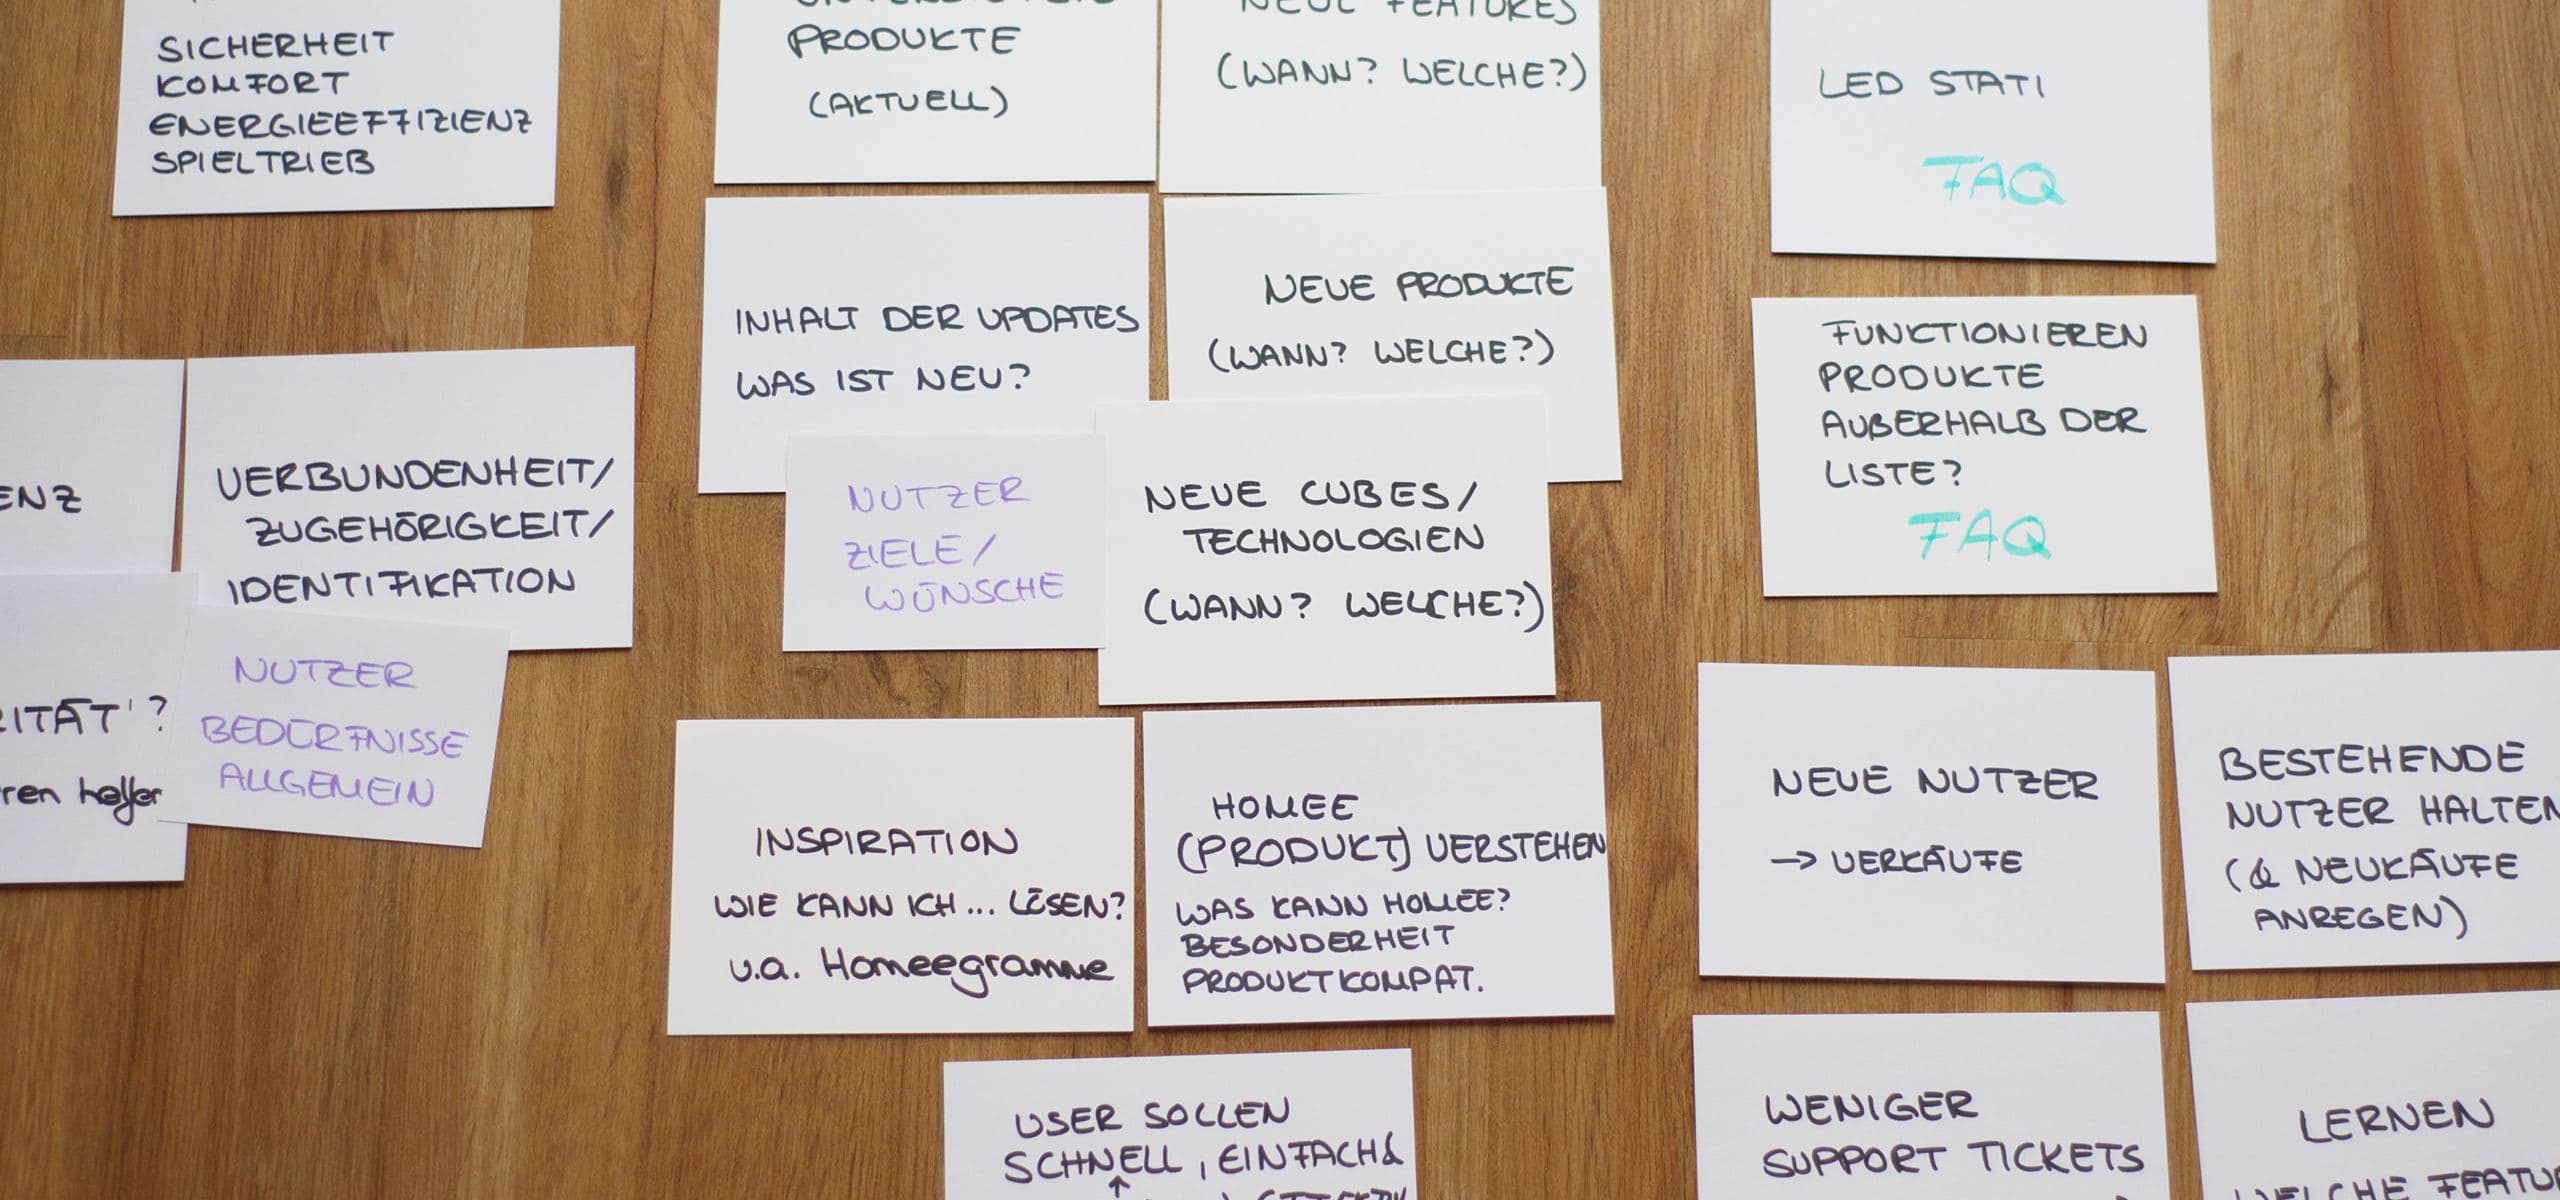 SICHERHEIT
KOMFORT
ENERGIEEFFIZIENZ
SPIELTRIEB
PRODUKTE
(AKTUELL)
NEUE FEATURES
(WANN? WELCHE?)
LED STATI
FAQ
INHALT DER UPDATES
WAS IST NEU?
NEUE PRODUKTE
(WANN? WELCHE?)
FUNKTIONIEREN
PRODUKTE
AUßERHALB DER
LISTE?
FAQ
ENZ
VERBUNDENHEIT/
ZUGEHÖRIGKEIT/
IDENTIFIKATION
NUTZER
ZIELE/
WÜNSCHE
NEUE CUBES/
TECHNOLOGIEN
(WANN? WELCHE?)
ITÄT'?
ren helfer
NUTZER
BEDÜRFNISSE
ALLGEMEIN
INSPIRATION
WIE KANN ICH... LÖSEN?
u.a. Homeegramme
HOMEE
(PRODUKT) VERSTEHEN
WAS KANN HOMEE?
BESONDERHEIT
PRODUKTKOMPAT.
NEUE NUTZER
→ VERKÄUFE
BESTEHENDE
NUTZER HALTEN
(& NEUKÄUFE
ANREGEN)
USER SOLLEN
SCHNELL, EINFACH &
WENIGER
SUPPORT TICKETS
LERNEN
WELCHE FEATU